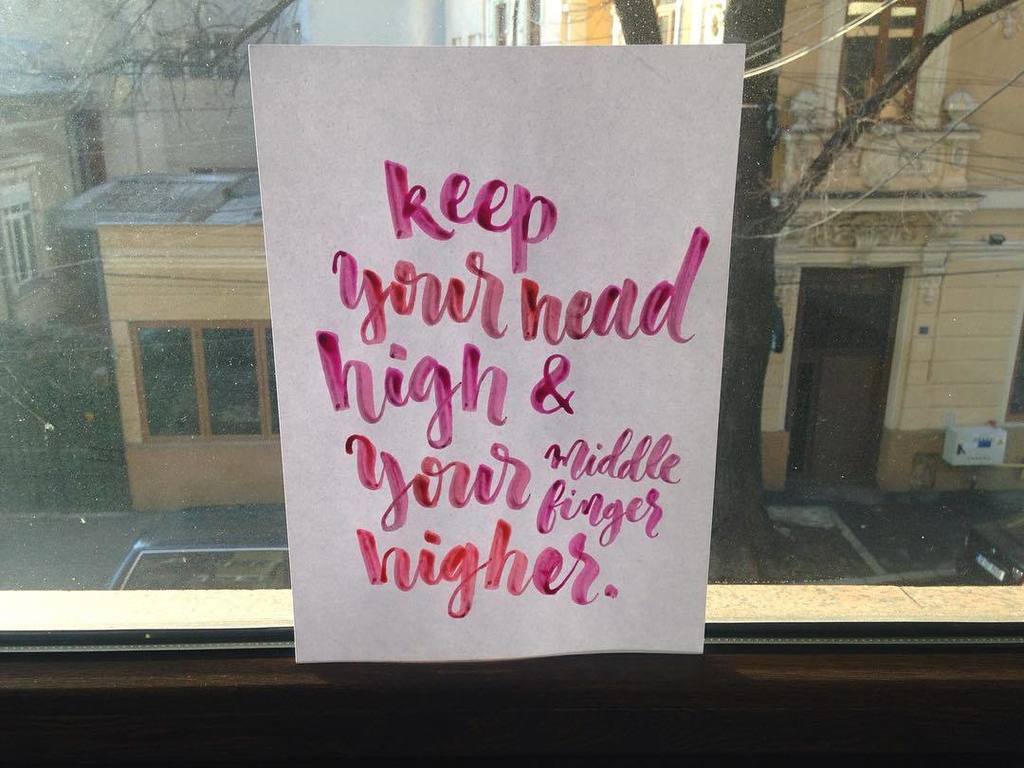 keep
your head
high &
your middle
finger
higher.